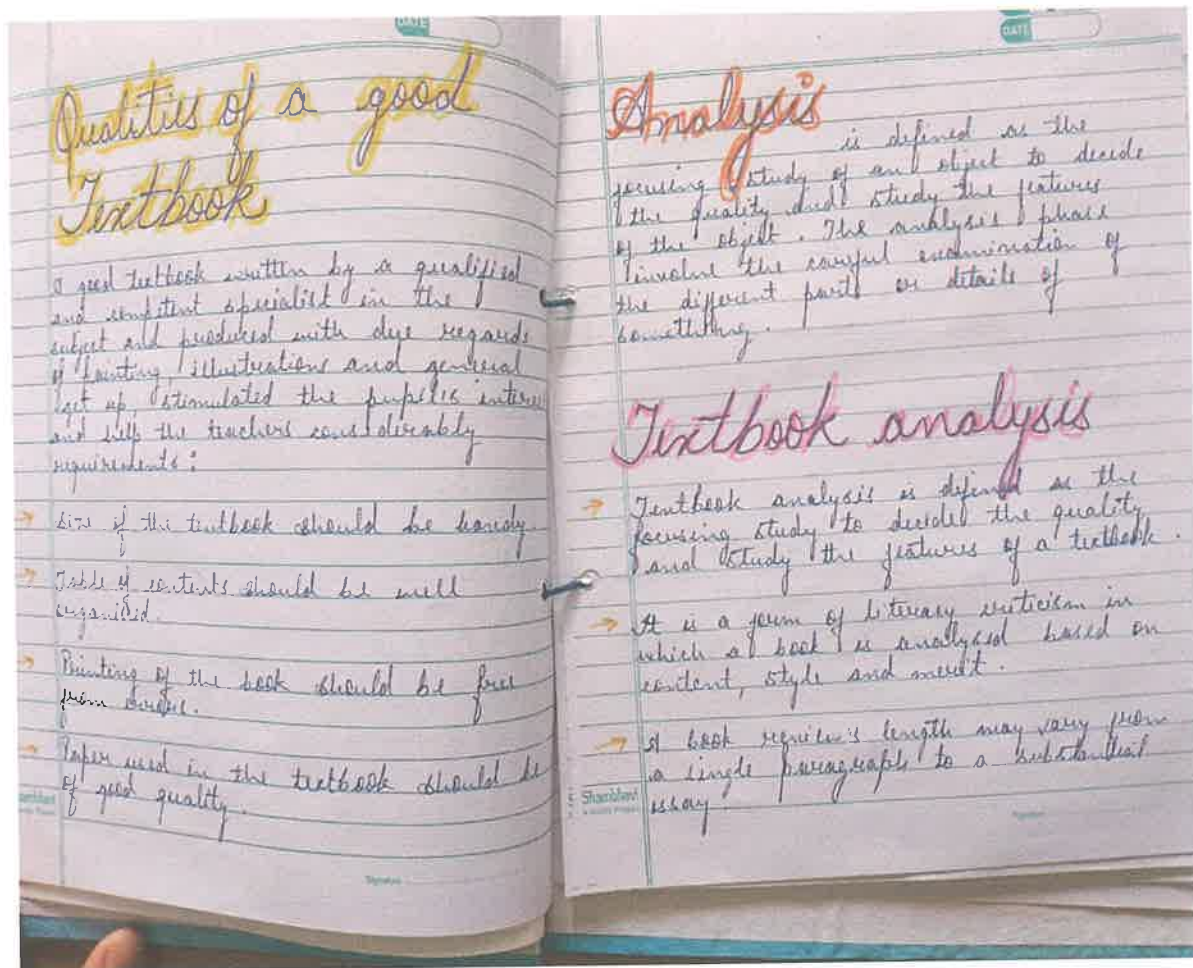 DATE
Qualities of a good
Textbook
A good textbook written by a qualified
and competent specialist in the
subject and produced with dye regards
of painting, illustrations and general
get up, stimulated the pupil's interes
and help the teachers considerably
requirements :
→ Size of the textbook should be handy.
→ Table of contents should be well
organised.
→ Printing of the book should be free
from errors.
→ Paper used in the textbook should be
of good quality.
Signature
DATE
Analysis
is defined as the
focusing study of an object to decide
the quality and study the features
of the object. The analysis phase
involve the careful examination of
the different parts or details of
something.
Textbook analysis
→ Textbook analysis is defined as the
focusing study to decided the quality
and study the features of a textbook.
→ It is a form of literary criticism in
which a book is analysed based on
content, style and merit.
→ A book review's length may vary from
a single paragraph to a substantial
essay.
Shambhavi
Signature